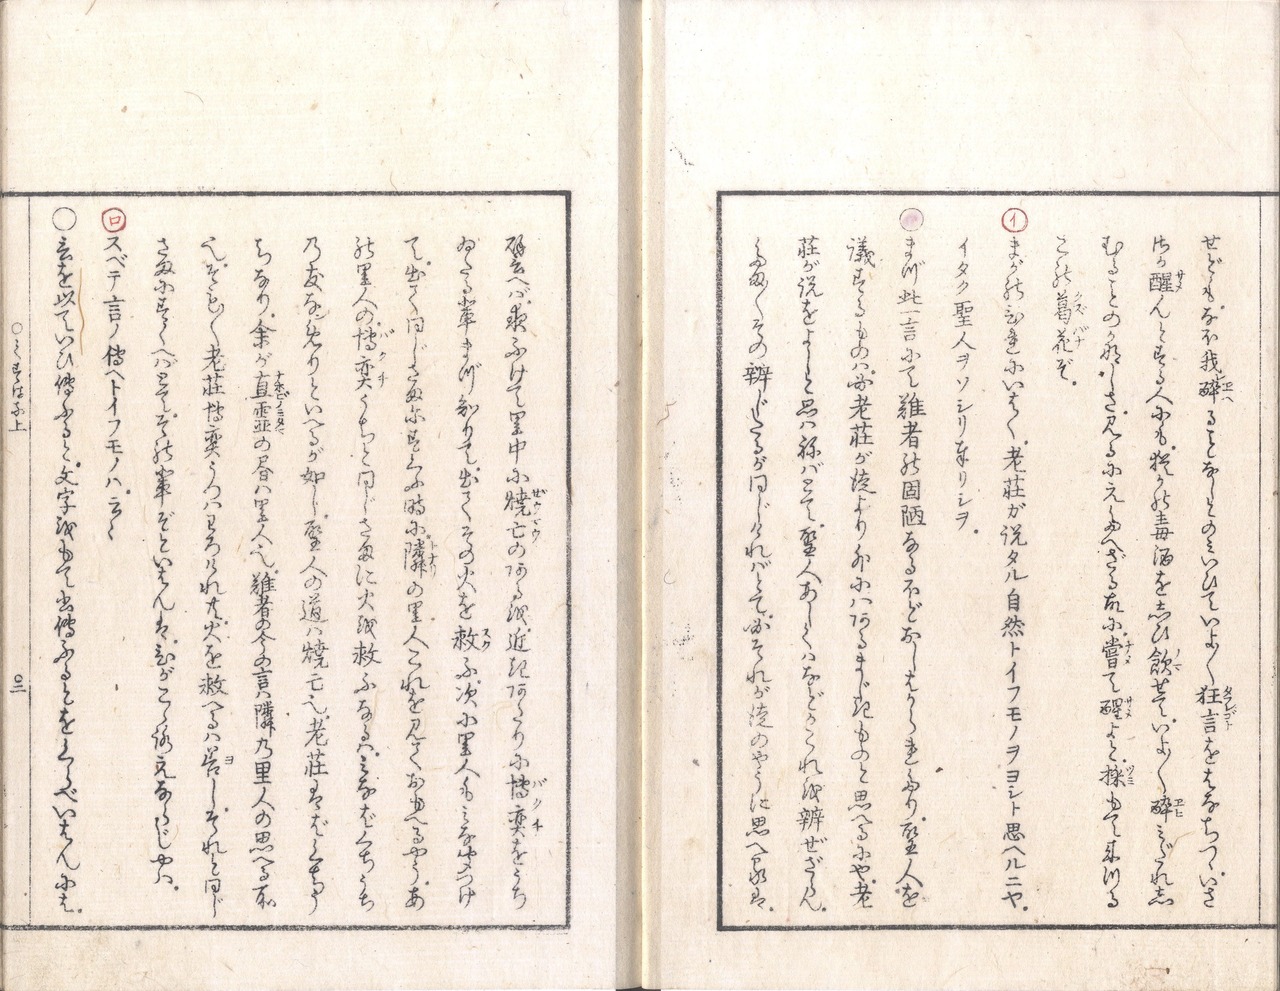 せども、なほ我醉ることなしとのみいひて、いよ〳〵狂言をはなちつゝ、いざ
汝を醒んとする人にも、猶かの毒酒をしひ飲せて、いよ〳〵醉みだれし
むることのかなしさ、見るにえたへざる故に、嘗て醒よと採もて來つる
この葛花ぞ、
イ まがのひれにいはく、老莊ガ説タル自然トイフモノヲヨシト思ヘルニヤ、
イタク聖人ヲソシリ奉リシヲ、
○まづ此一言にて、難者の固陋なるほどおしはかられたり、聖人を
議するものは、必老莊が徒より外にはあるまじきものと思へるにや、老
莊が説をよしと思はねばとて、聖人あしくはなどかこれを辨ぜざらん、
たま〳〵その辨じたるが同じければとて、必それが徒のやうに思へるは、
譬へば、夜ふけて里中に燒亡のあるを、近きあたりに博奕をうち
ゐたる輩まづ知りて、出てその火を救ふ、次に里人もみなつけ
て、出て同じさまにすくふ時に、隣の里人これを見ておもへるやう、あ
の里人の博奕うちと同じさまに火を救ふなるは、みなばくちうち
乃友なめりといへるが如し、聖人の道は燒亡也、老莊はばくちう
ちなり、余が直霊の書は里人也、難者の今の言は隣乃里人の思へる所
也、そも〳〵老莊博奕うつはわろけれ共、火を救へるは善し、それと同じ
さまにすくへばとて、その輩ぞといはんは、ひがこゝろえなるじや、
ロ スベテ言ノ傳ヘトイフモノハ、云々
○言を以ていひ傳ふると、文字をもて書傳ふるとをくらべいはんには、
○くずはな上 ○三